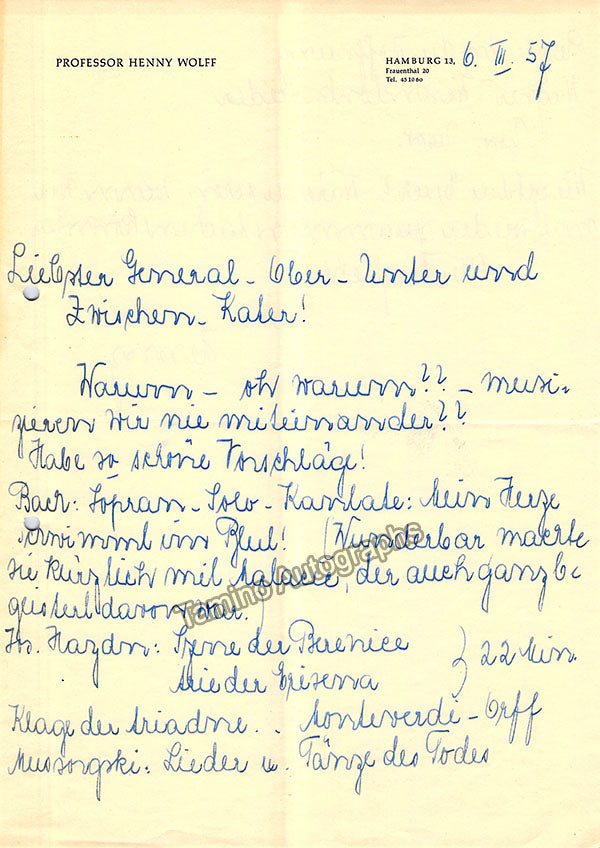 PROFESSOR HENNY WOLFF
HAMBURG 13, 6. III. 57
Frauenthal 20
Tel. 45 10 60
Liebster General - Ober - Unter und
Zwischen - Kater!
Warum - oh warum?? - musi-
zieren wir nie miteinander??
Habe so schöne Vorschläge!
Bach: Sopran - Solo - Kantate: Mein Herze
schwimmt im Blut! (Wunderbar machte
sie kürzlich mit Malacé, der auch ganz be
geistert davon war.)
Jos. Haydn: Szene der Berenice
Arie der Erisena } 22 Min.
Klage der Ariadne .. Monteverdi - Orff
Mussorgski: Lieder u. Tänze des Todes
Tamino Autographs